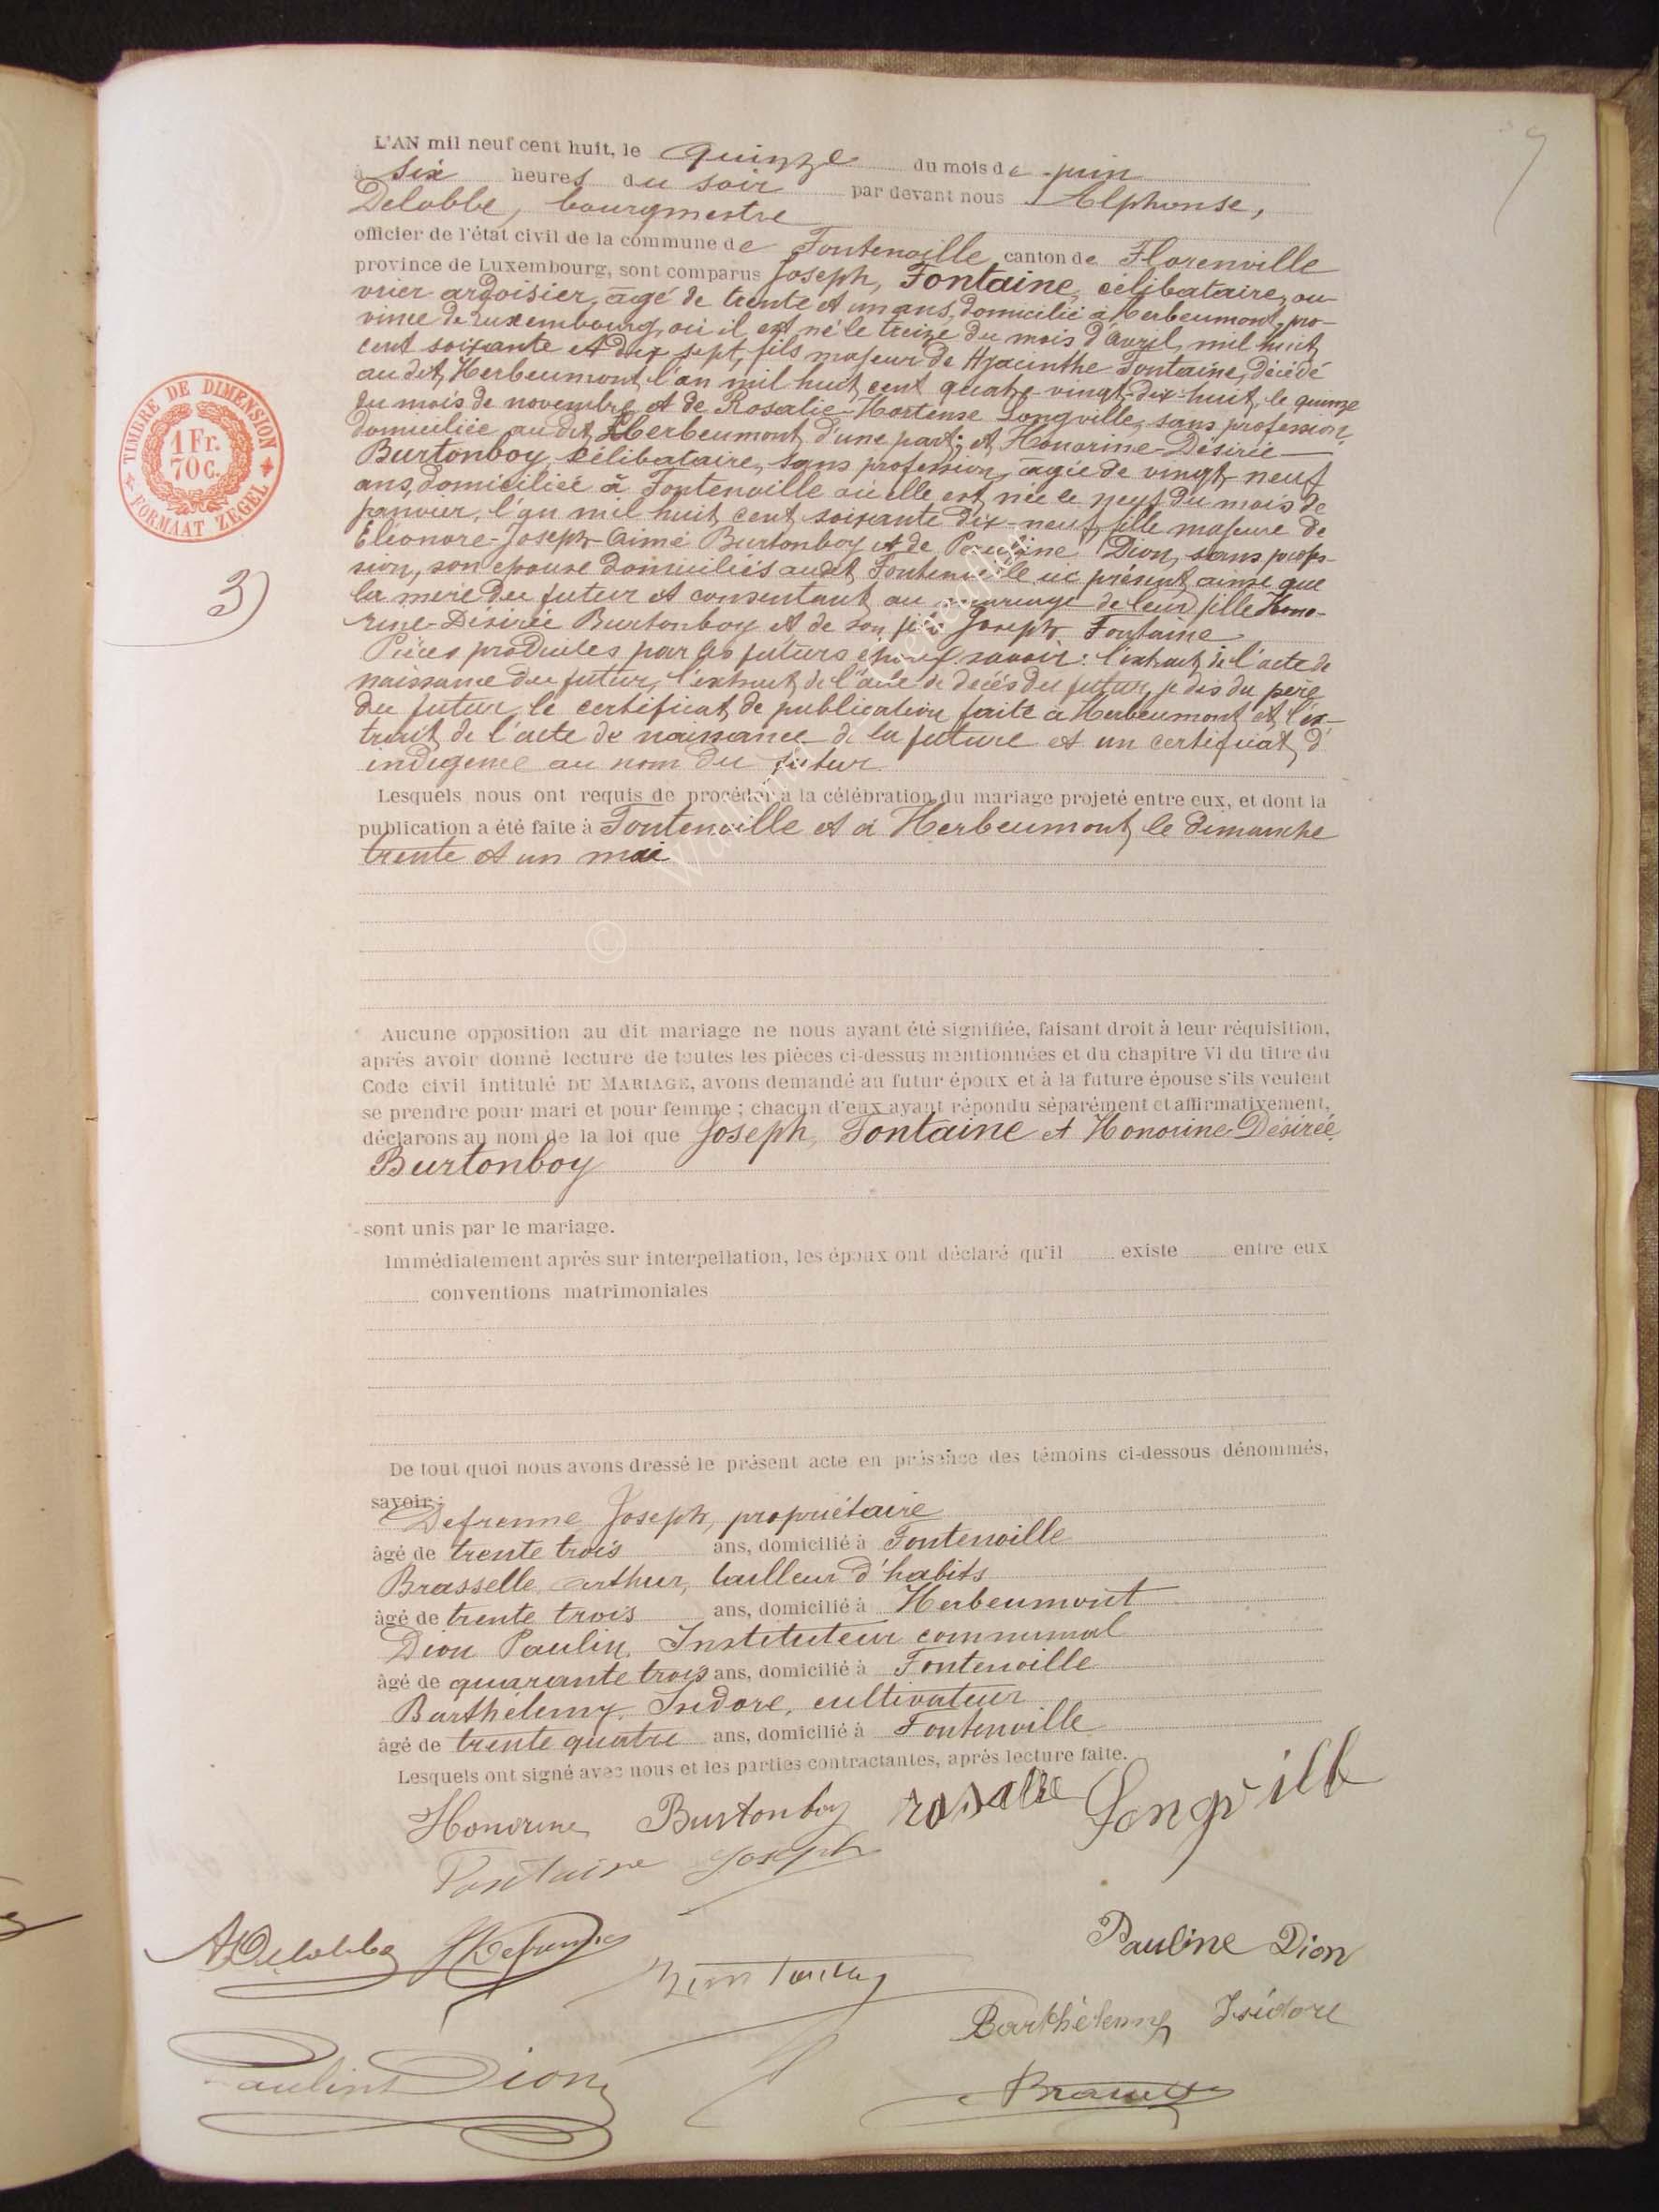 L'AN mil neuf cent huit, le quinze du mois de juin
à six heures du soir par devant nous Alphonse,
Delobbe, bourgmestre
officier de l'état civil de la commune de Fontenoille canton de Florenville
province de Luxembourg, sont comparus Joseph, Fontaine, célibataire, ou-
vrier ardoisier, âgé de trente et un ans, domicilié à Herbeumont, pro-
vince de Luxembourg, où il est né le treize du mois d'avril, mil huit
cent soixante et dix sept, fils majeur de Hyacinthe Fontaine, décédé
au dit Herbeumont, l'an mil huit cent quatre-vingt-dix-huit, le quinze
du mois de novembre et de Rosalie-Hortense Longville, sans profession,
domiciliée au dit Herbeumont, d'une part; et Honorine-Désirée
Burtonboy, célibataire, sans profession, âgée de vingt-neuf
ans, domiciliée à Fontenoille où elle est née le neuf du mois de
janvier, l'an mil huit cent soixante dix-neuf, fille majeure de
Eléonore-Joseph-Aimé Burtonboy et de Pauline Dion, sans profes-
sion, son épouse domiciliés audit Fontenoille ici présent ainsi que
la mère du futur et consentant au mariage de leur fille Hono-
rine-Désirée Burtonboy et de son fils Joseph Fontaine
Pièces produites par les futurs époux savoir: l'extrait de l'acte de
naissance du futur, l'extrait de l'acte de décès du futur, je dis du père
du futur, le certificat de publication faite à Herbeumont et l'ex-
trait de l'acte de naissance de la future et un certificat d'
indigence au nom du futur
Lesquels nous ont requis de procéder à la célébration du mariage projeté entre eux, et dont la
publication a été faite à Fontenoille et à Herbeumont, le dimanche
trente et un mai
TIMBRE DE DIMENSION
1 Fr.
70 c.
FORMAAT ZEGEL
3)
Aucune opposition au dit mariage ne nous ayant été signifiée, faisant droit à leur réquisition,
après avoir donné lecture de toutes les pièces ci-dessus mentionnées et du chapitre VI du titre du
Code civil intitulé DU MARIAGE, avons demandé au futur époux et à la future épouse s'ils veulent
se prendre pour mari et pour femme ; chacun d'eux ayant répondu séparément et affirmativement,
déclarons au nom de la loi que Joseph, Fontaine et Honorine-Désirée
Burtonboy
sont unis par le mariage.
Immédiatement après sur interpellation, les époux ont déclaré qu'il existe entre eux
conventions matrimoniales
De tout quoi nous avons dressé le présent acte en présence des témoins ci-dessous dénommés,
savoir:
Defrenne Joseph, propriétaire
âgé de trente trois ans, domicilié à Fontenoille
Brasselle, Arthur, tailleur d'habits
âgé de trente trois ans, domicilié à Herbeumont
Dion Paulin, Instituteur communal
âgé de quarante trois ans, domicilié à Fontenoille
Barthélemy, Isidore, cultivateur
âgé de trente quatre ans, domicilié à Fontenoille
Lesquels ont signé avec nous et les parties contractantes, après lecture faite.
Honorine Burtonboy rosalie Longvill
Fontaine Joseph
A Delobbe
Pauline Dion
Barthélemy Isidore
Paulin Dion